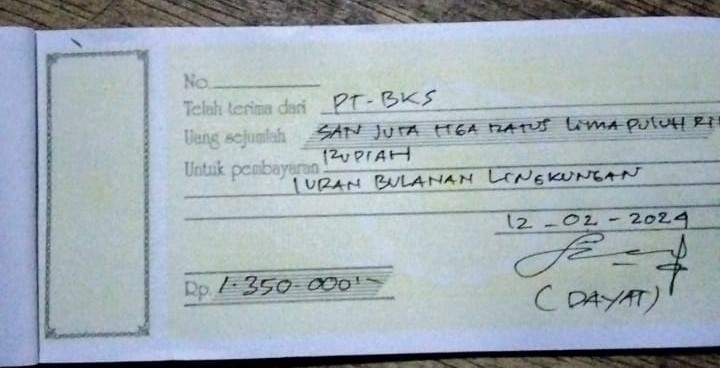 No.
Telah terima dari PT-BKS
Uang sejumlah SATU JUTA TIGA RATUS LIMA PULUH RI
RUPIAH
Untuk pembayaran
IURAN BULANAN LINGKUNGAN
12-02-2024
Rp. 1.350.000,-
(DAYAT)